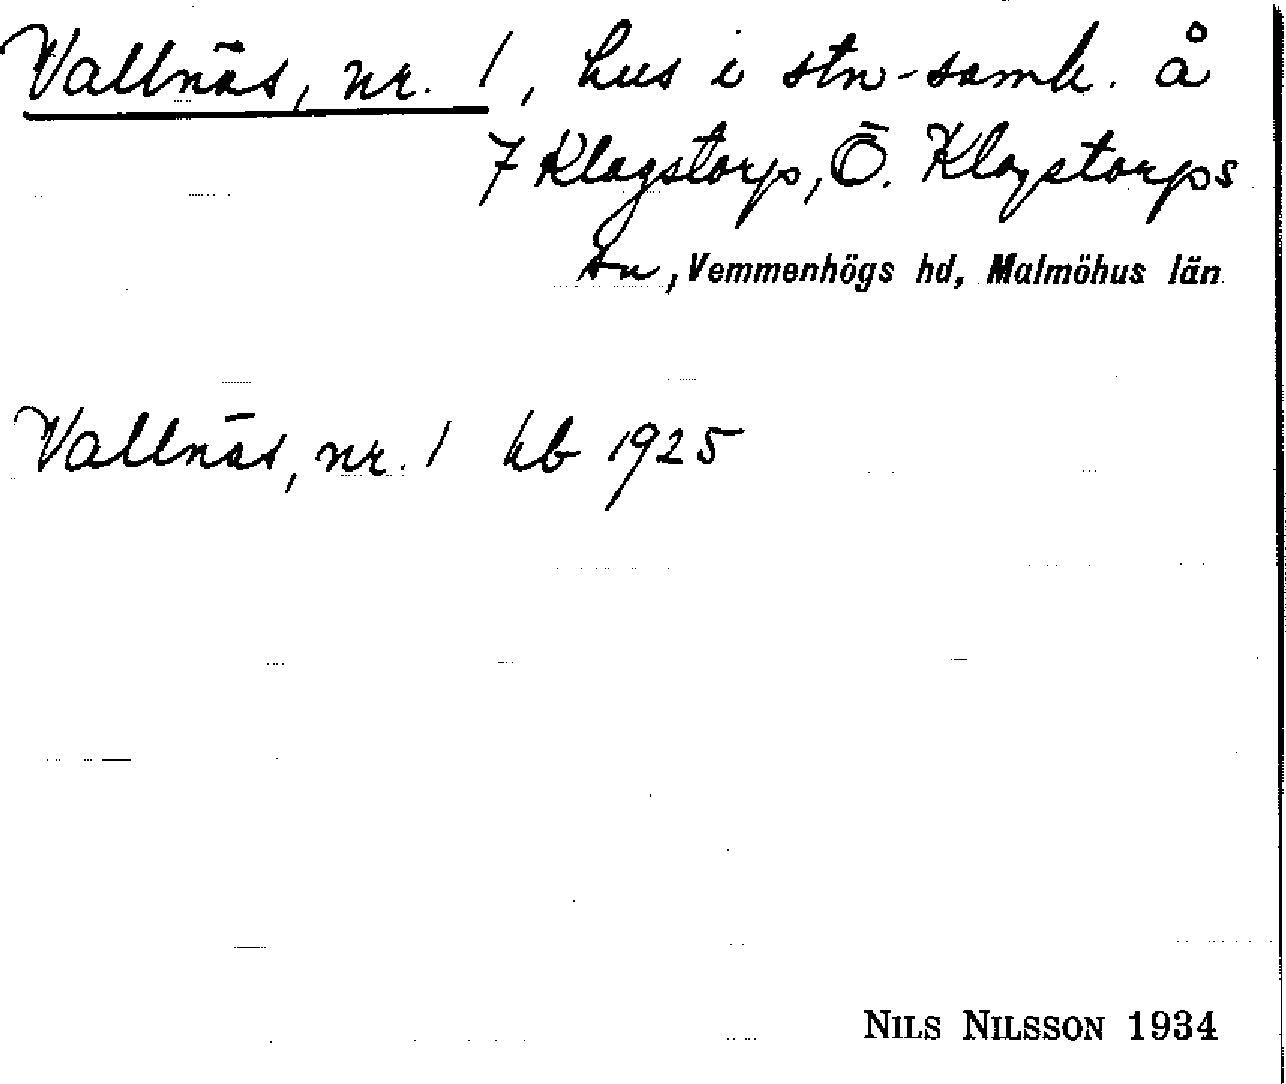 Vallnäs, nr. 1, hus i stn-samh. å
7 Klagstorp, Ö. Klagstorps
sn, Vemmenhögs hd, Malmöhus län
Vallnäs, nr. 1 kb 1925
NILS NILSSON 1934